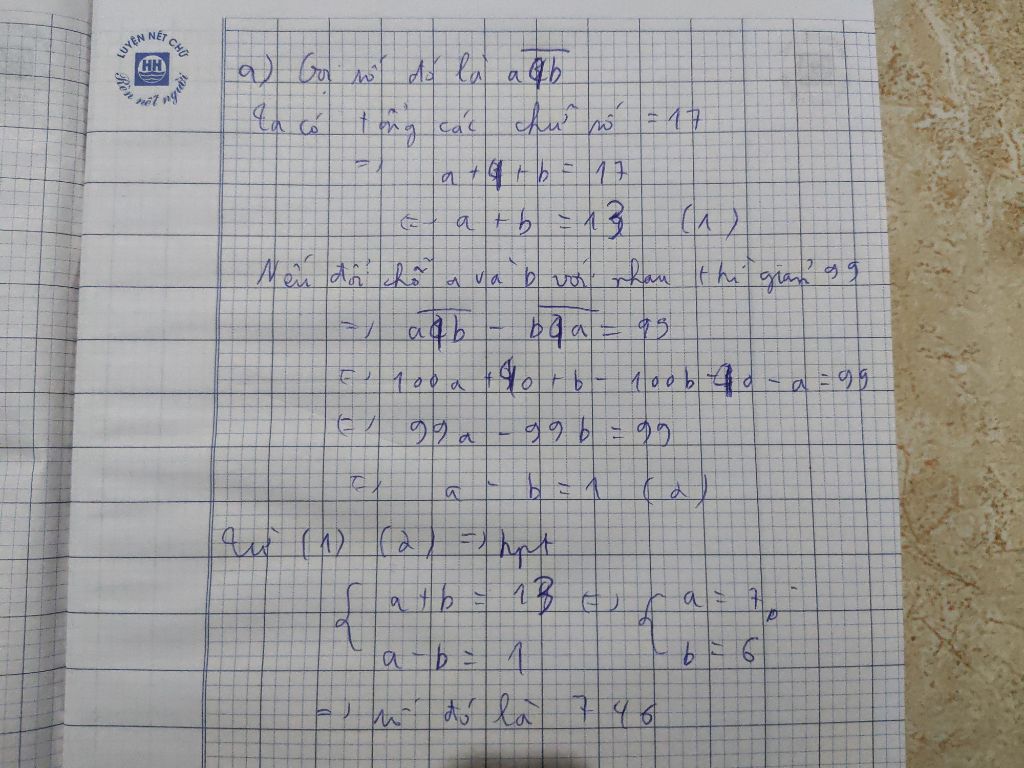 LUYỆN NÉT CHỮ
HH
Rèn nết người
a) Gọi số đó là a4b
Ta có tổng các chữ số = 17
=> a + 4 + b = 17
<=> a + b = 13 (1)
Nếu đổi chỗ a và b với nhau thì giảm 99
=> a4b - b4a = 99
<=> 100a + 40 + b - 100b - 40 - a = 99
<=> 99a - 99b = 99
<=> a - b = 1 (2)
Từ (1) (2) => hpt
{ a + b = 13 <=> { a = 7
a - b = 1 b = 6
=> số đó là 746